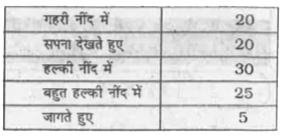 गहरी नींद में 20
सपना देखते हुए 20
हल्की नींद में 30
बहुत हल्की नींद में 25
जागते हुए 5